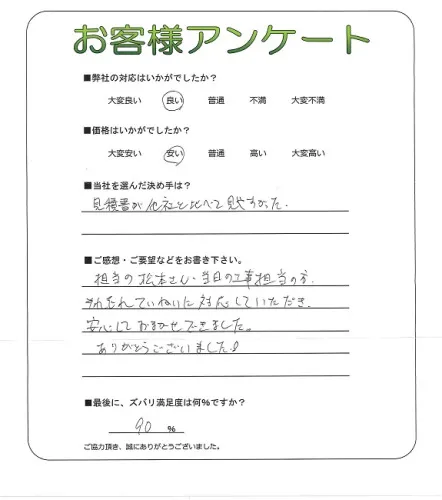 お客様アンケート
■弊社の対応はいかがでしたか？
大変良い 良い 普通 不満 大変不満
■価格はいかがでしたか？
大変安い 安い 普通 高い 大変高い
■当社を選んだ決め手は？
見積書が他社と比べて見やすかった.
■ご感想・ご要望などをお書き下さい。
担当の松本さん・当日の工事担当の方.
それぞれていねいに対応していただき.
安心しておまかせできました。
ありがとうございました
■最後に、ズバリ満足度は何%ですか？
90 %
ご協力頂き、誠にありがとうございました。